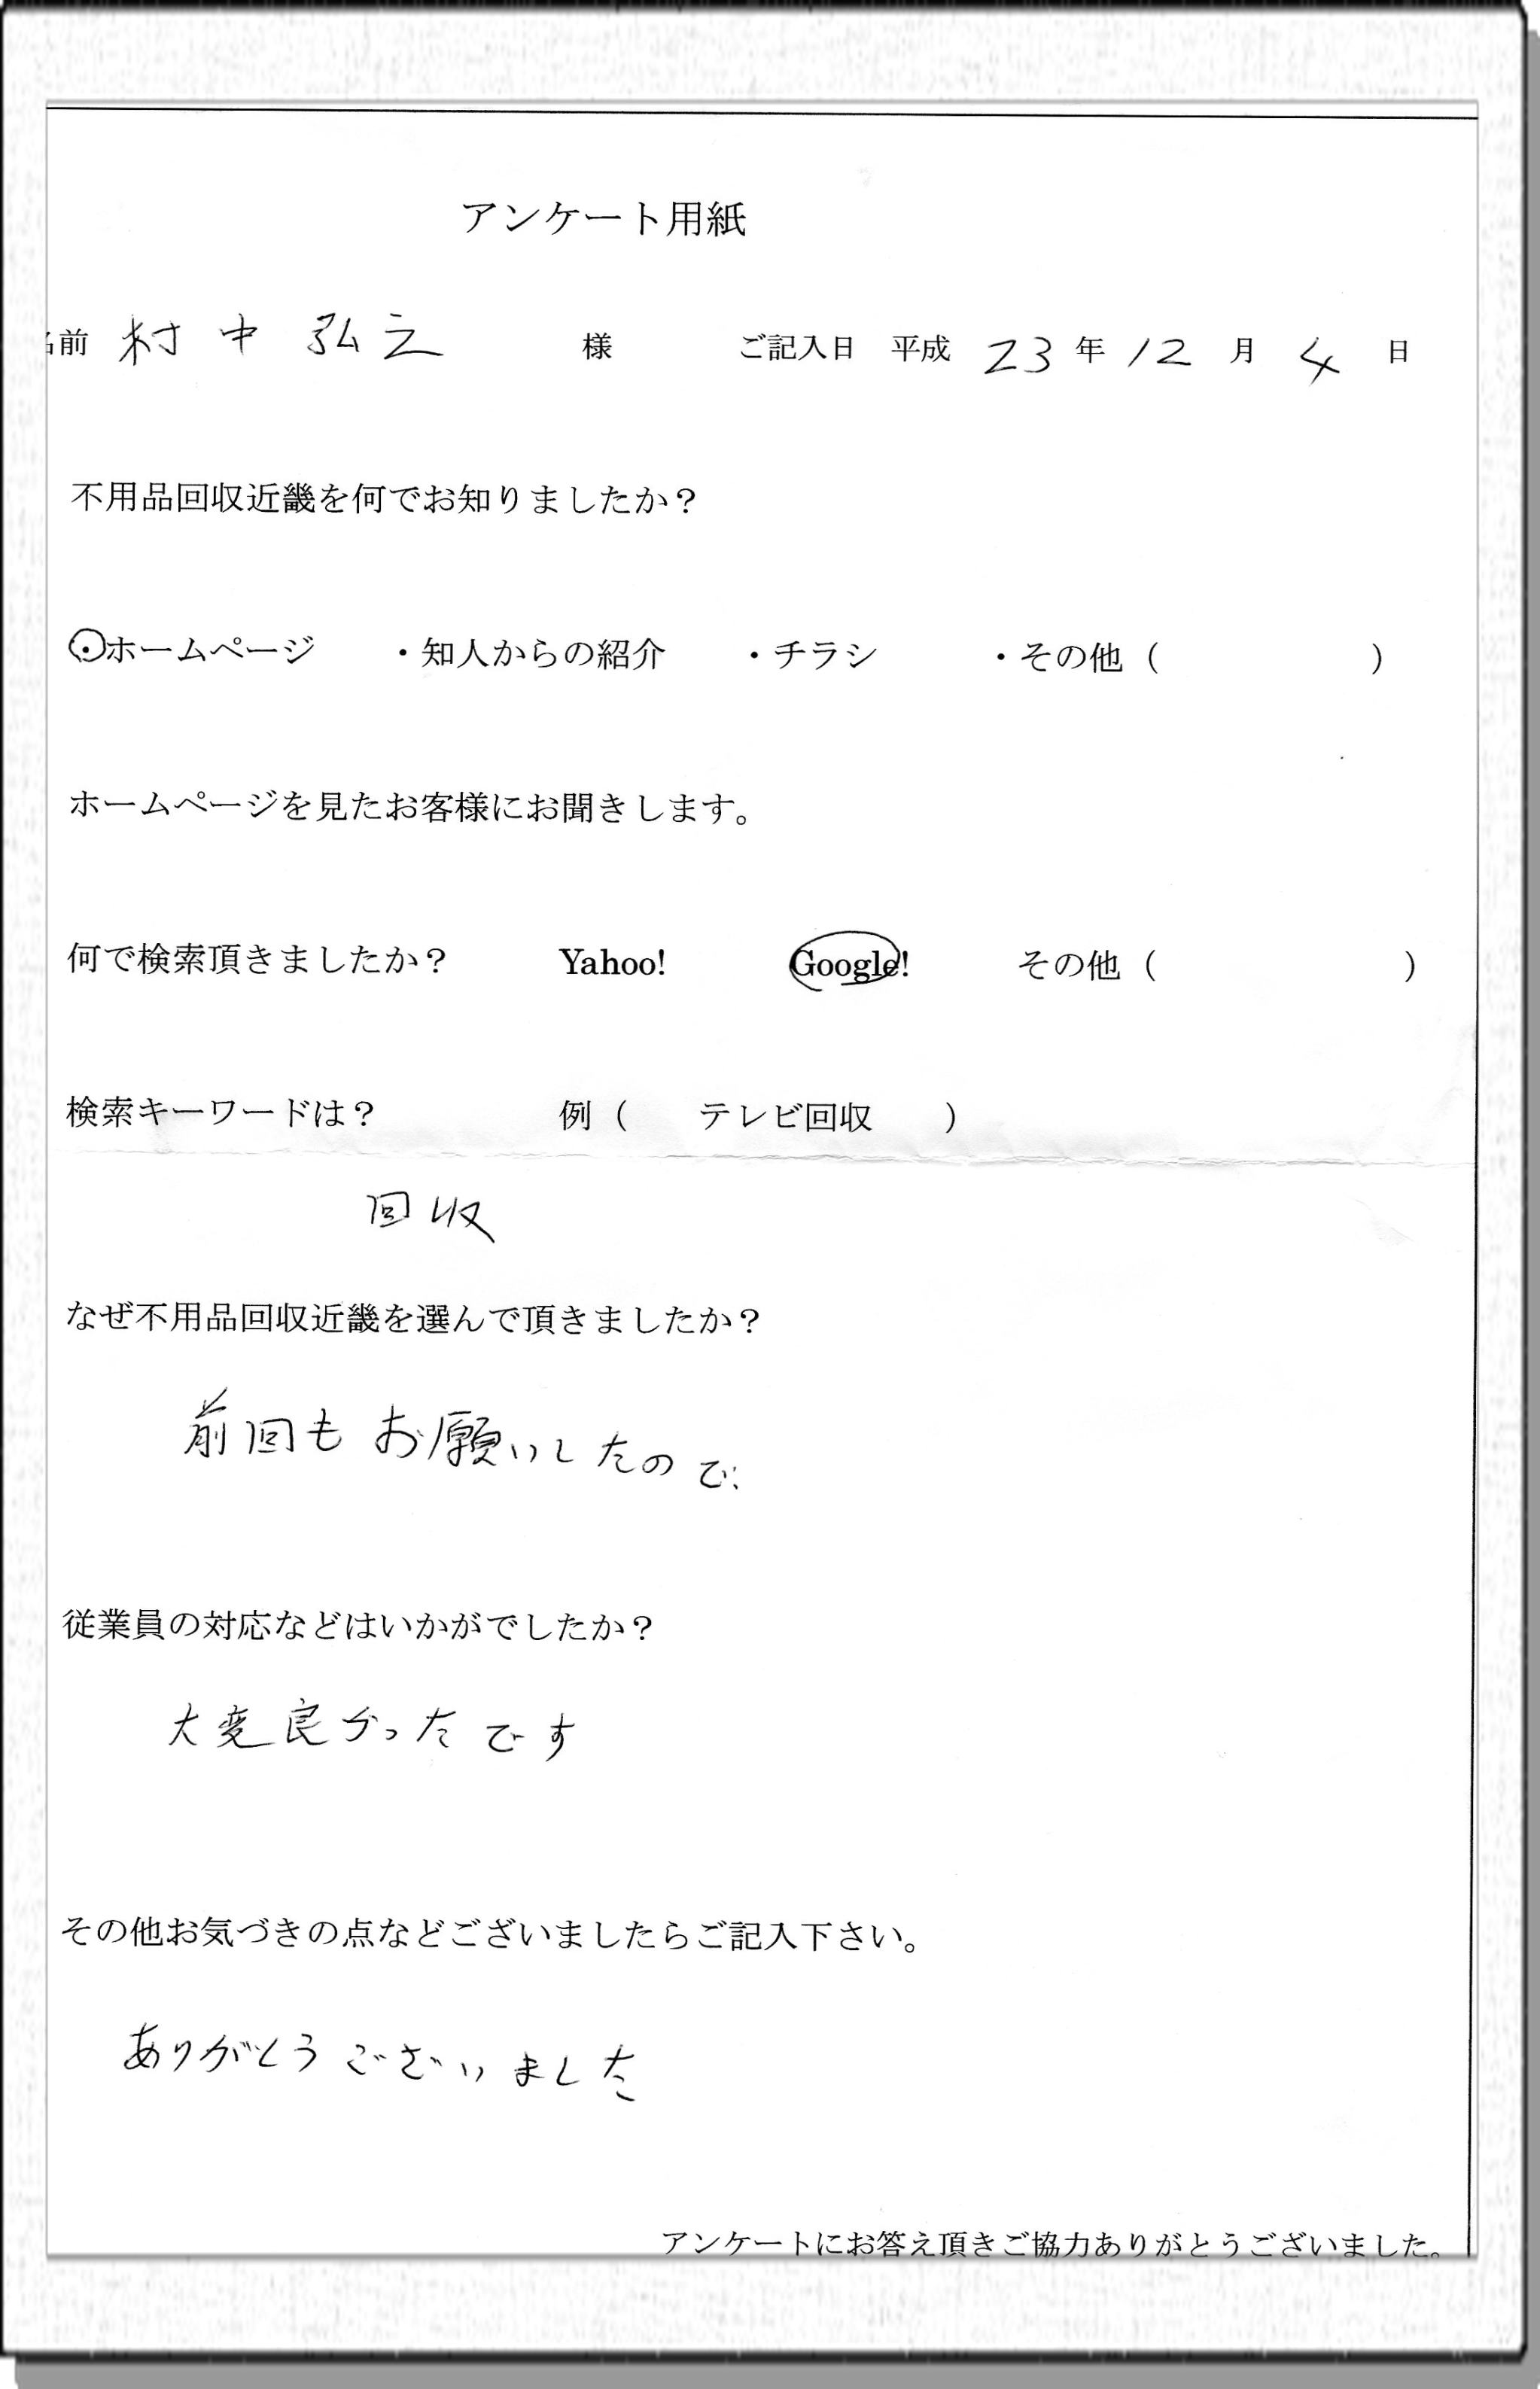 アンケート用紙
名前 村中弘之 様 ご記入日 平成 23 年 12 月 4 日
不用品回収近畿を何でお知りましたか？
・ホームページ ・知人からの紹介 ・チラシ ・その他（ ）
ホームページを見たお客様にお聞きします。
何で検索頂きましたか？ Yahoo! Google! その他（ ）
検索キーワードは？ 例（ テレビ回収 ）
回収
なぜ不用品回収近畿を選んで頂きましたか？
前回もお願いしたので、
従業員の対応などはいかがでしたか？
大変良かったです
その他お気づきの点などございましたらご記入下さい。
ありがとうございました
アンケートにお答え頂きご協力ありがとうございました。